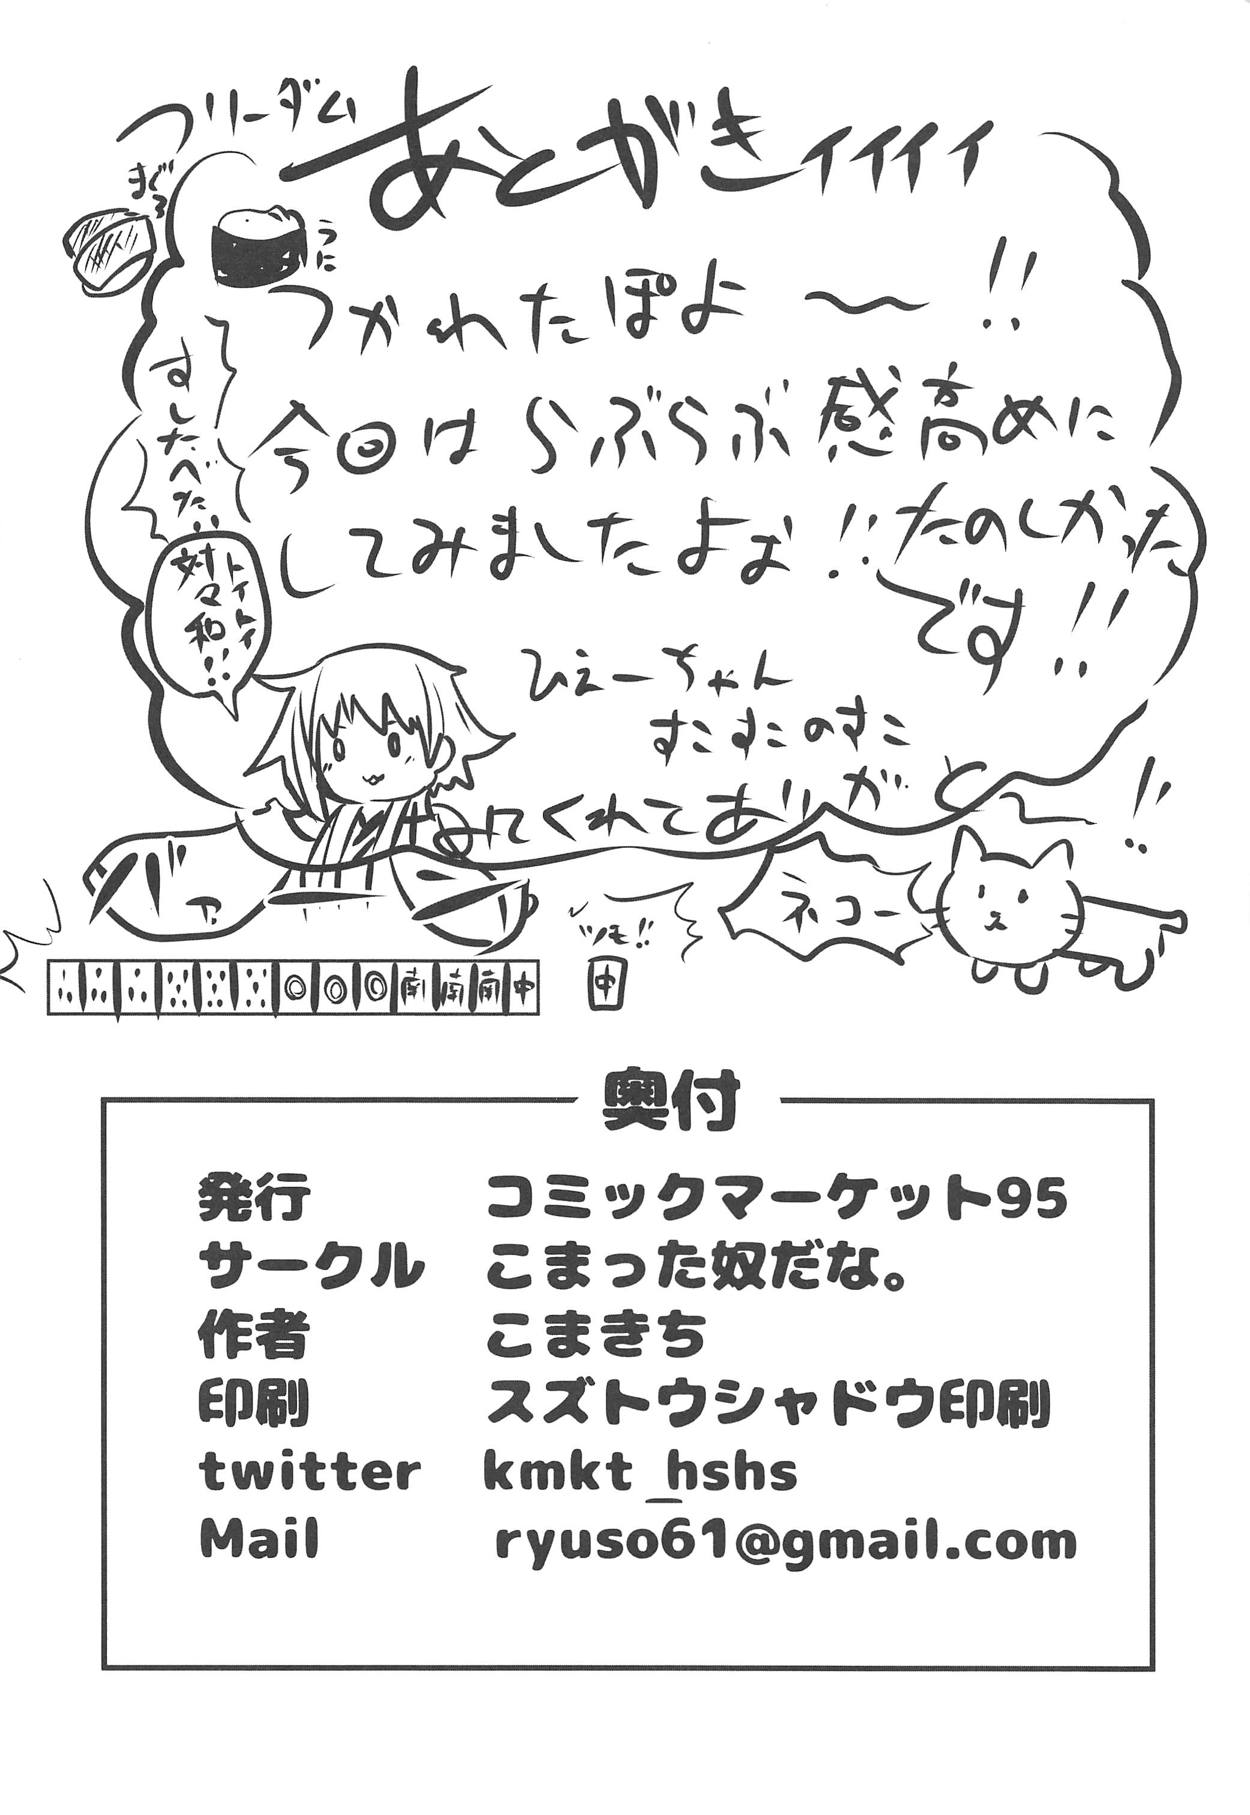 フリーダム
あとがきィィィィ
まぐろ
うに
つかれたぽよ〜!!
すしたべた!!
今回はらぶらぶ感高めに
してみましたよぉ!!たのしかった
です!!
トイトイ
対々和!!
ひえーちゃん
すこすこのすこ
みてくれてありがと〜!!
ネコー
ツモ!!
南南南中
中
奥付
発行 コミックマーケット95
サークル こまった奴だな。
作者 こまきち
印刷 スズトウシャドウ印刷
twitter kmkt_hshs
Mail ryuso61@gmail.com